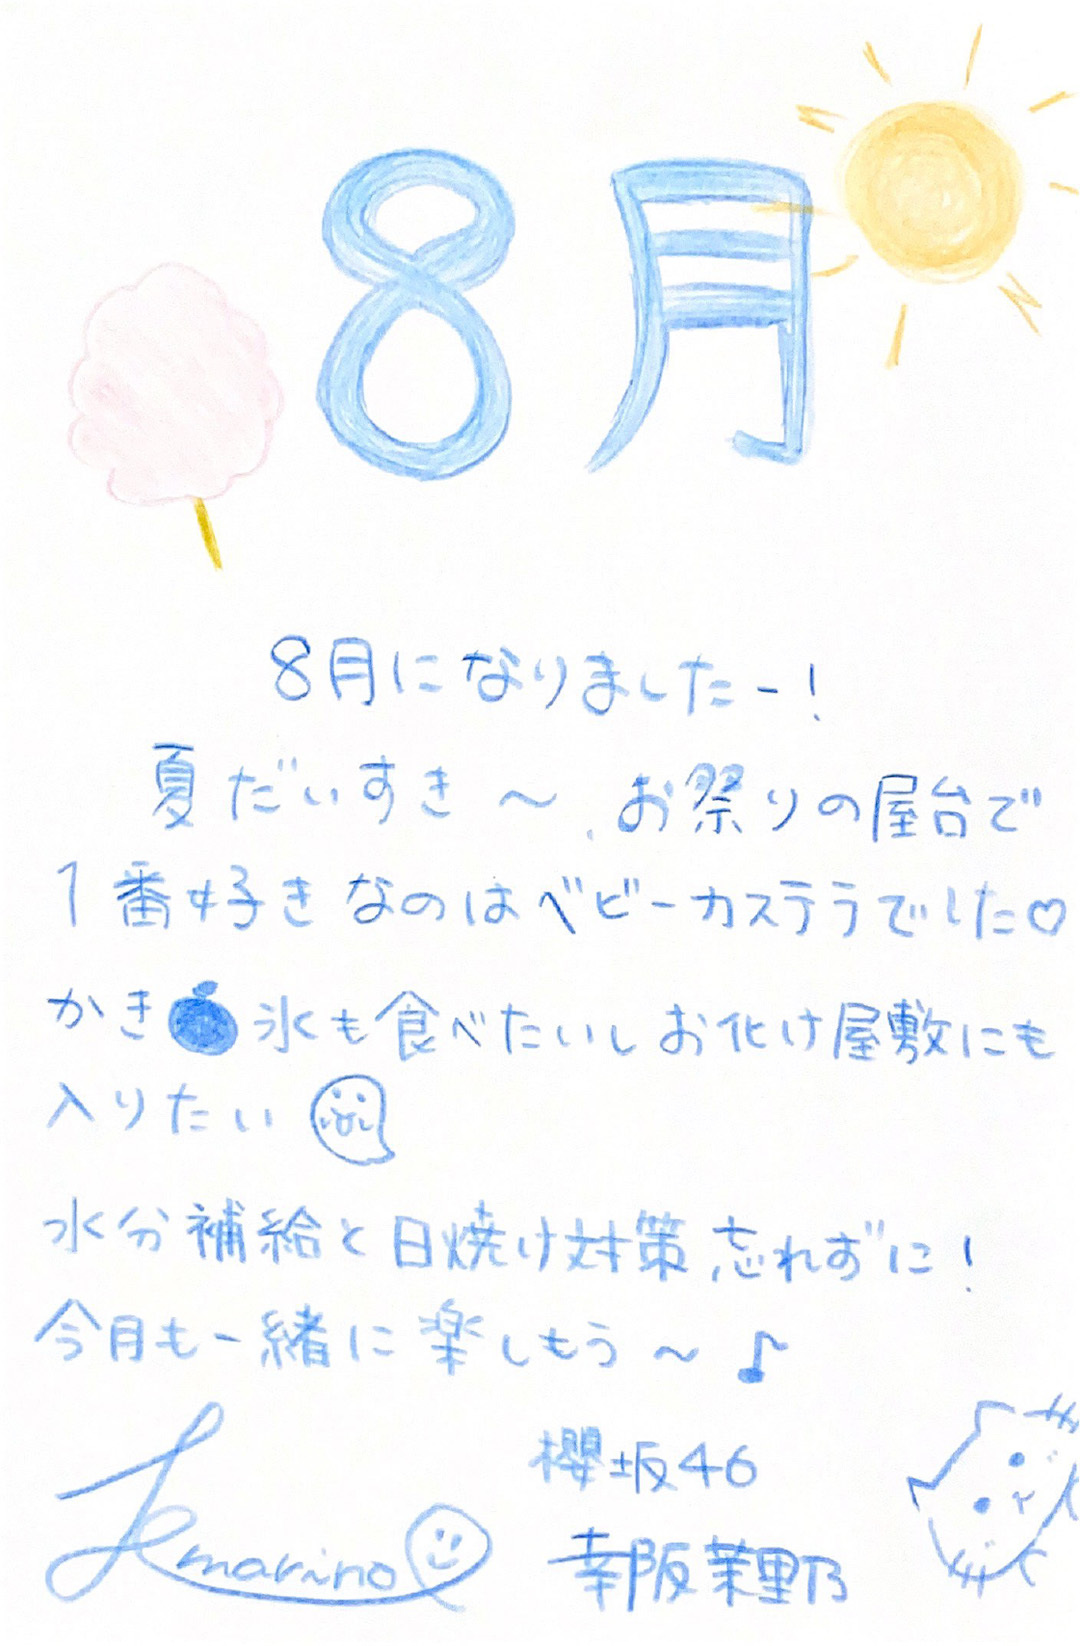 8月
8月になりましたー!
夏だいすき〜、お祭りの屋台で
1番好きなのはベビーカステラでした♡
かき氷も食べたいしお化け屋敷にも
入りたい
水分補給と日焼け対策忘れずに!
今月も一緒に楽しもう〜♪
marino
櫻坂46
幸阪茉里乃